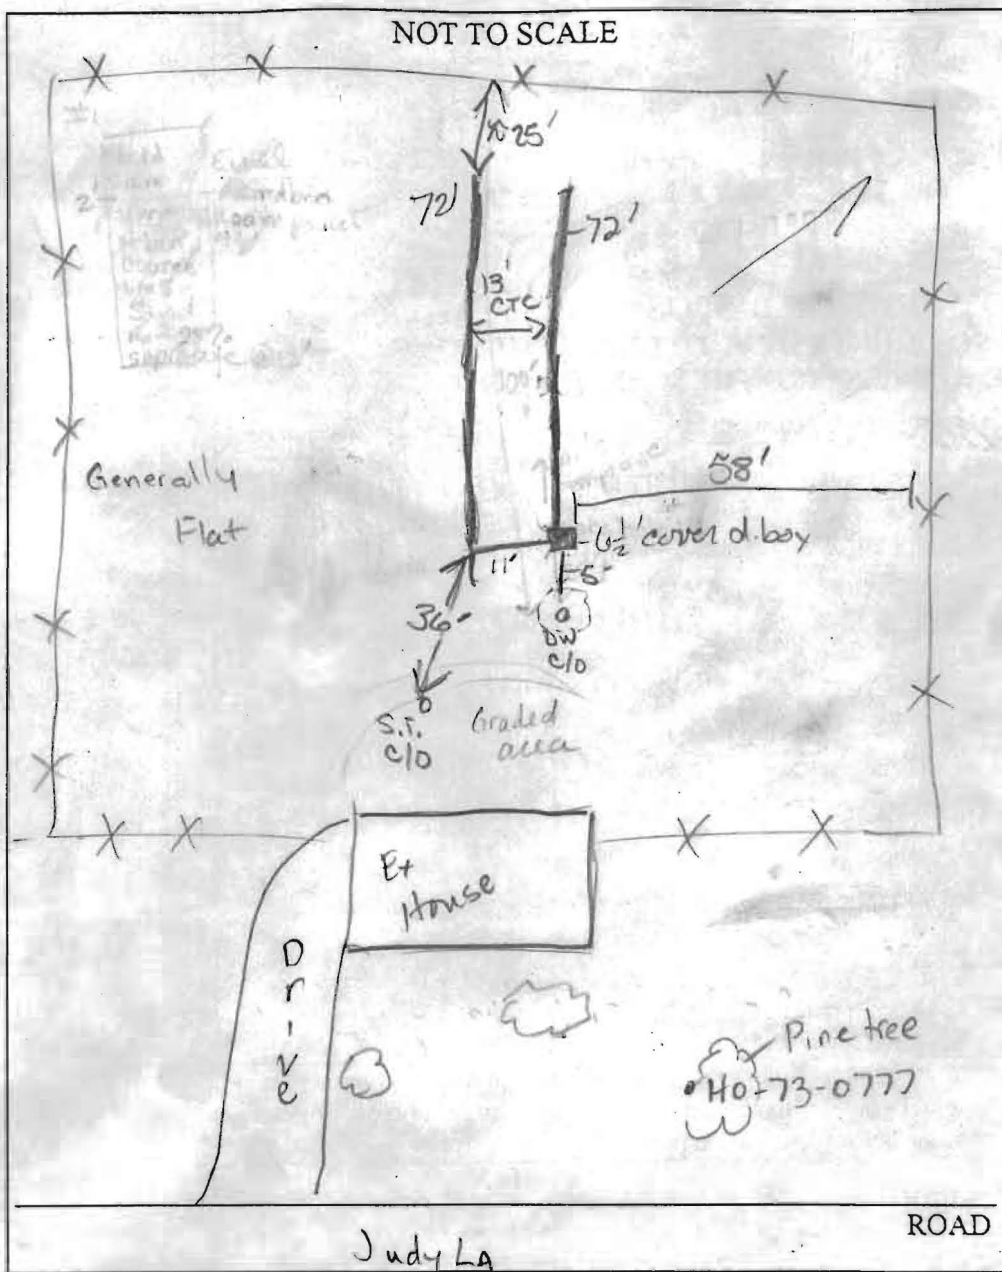 NOT TO SCALE
25'
72'
72'
13'
CTC
100'
58'
Generally
Flat
6 1/2' cover d.box
11'
5'
36'
DW
c/o
S.T.
c/o
Graded
area
Ext
House
Drive
Pine tree
HO-73-0777
ROAD
Judy LA